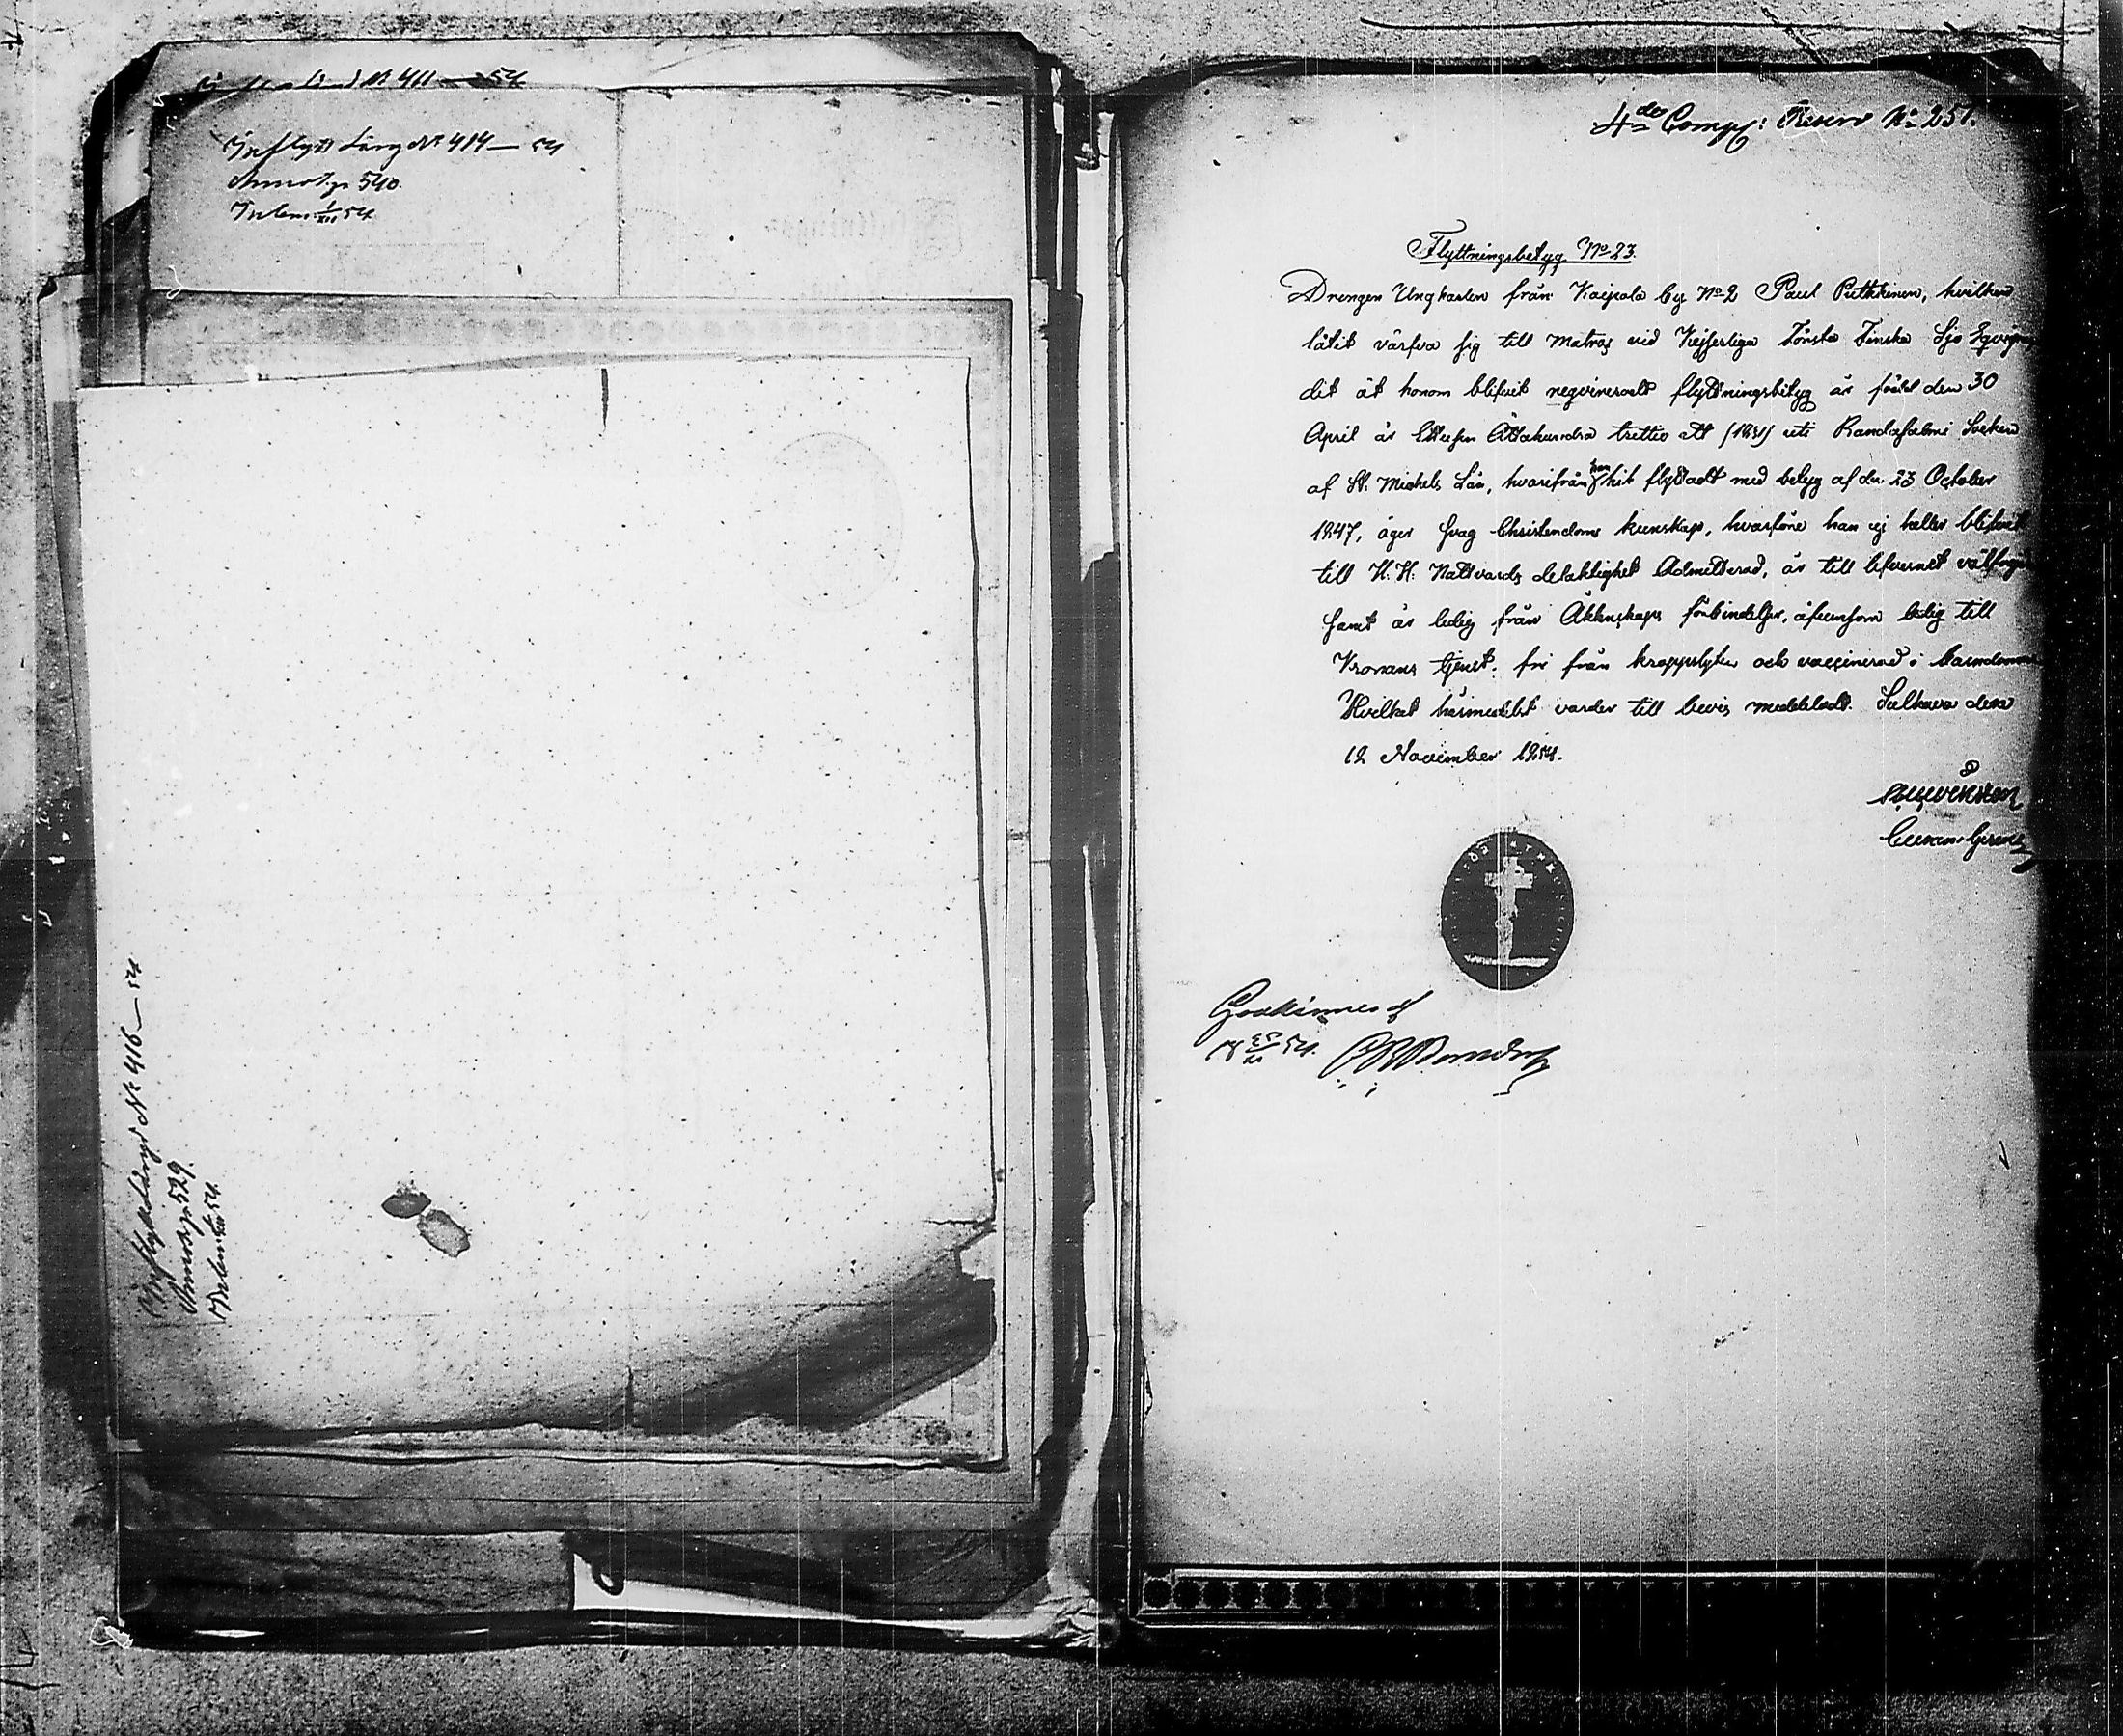 Inflytt Läng Nº 414 — 54
Annot. p. 540.
4de Comp: Reserv Nº 251.
Flyttningsbetyg Nº 23.
Drengen Ungkarlen från Kaipala by Nº 2 Paul Putkkinen, hvilken
låtit värfva sig till Matros vid Kejserliga Första Finska Sjö Eqvipag
dit åt honom blifvit reqvireradt flyttningsbetyg är född den 30
April år Ettusen Åttahundra trettio ett (1831) uti Randasalmi Socken
af St. Michels Län, hvarifrån han hit flyttadt med betyg af den 23 October
1847, äger svag Christendoms kunskap, hvarföre han ej heller blifvit
till H: H: Nattvards delaktighet Admitterad, är till lefvernet välfrejdad
samt är ledig från Äktenskaps förbindelser, äfvensom ledig till
Kronans tjenst, fri från kroppslyten och vaccinerad i barndomen
Hvilket härmedelst varder till bevis meddeladt. Sulkava den
12 November 1854.
Godkännes af
54.
Inflyttn. Längd Nº 416 — 54
Annot. p. 529.